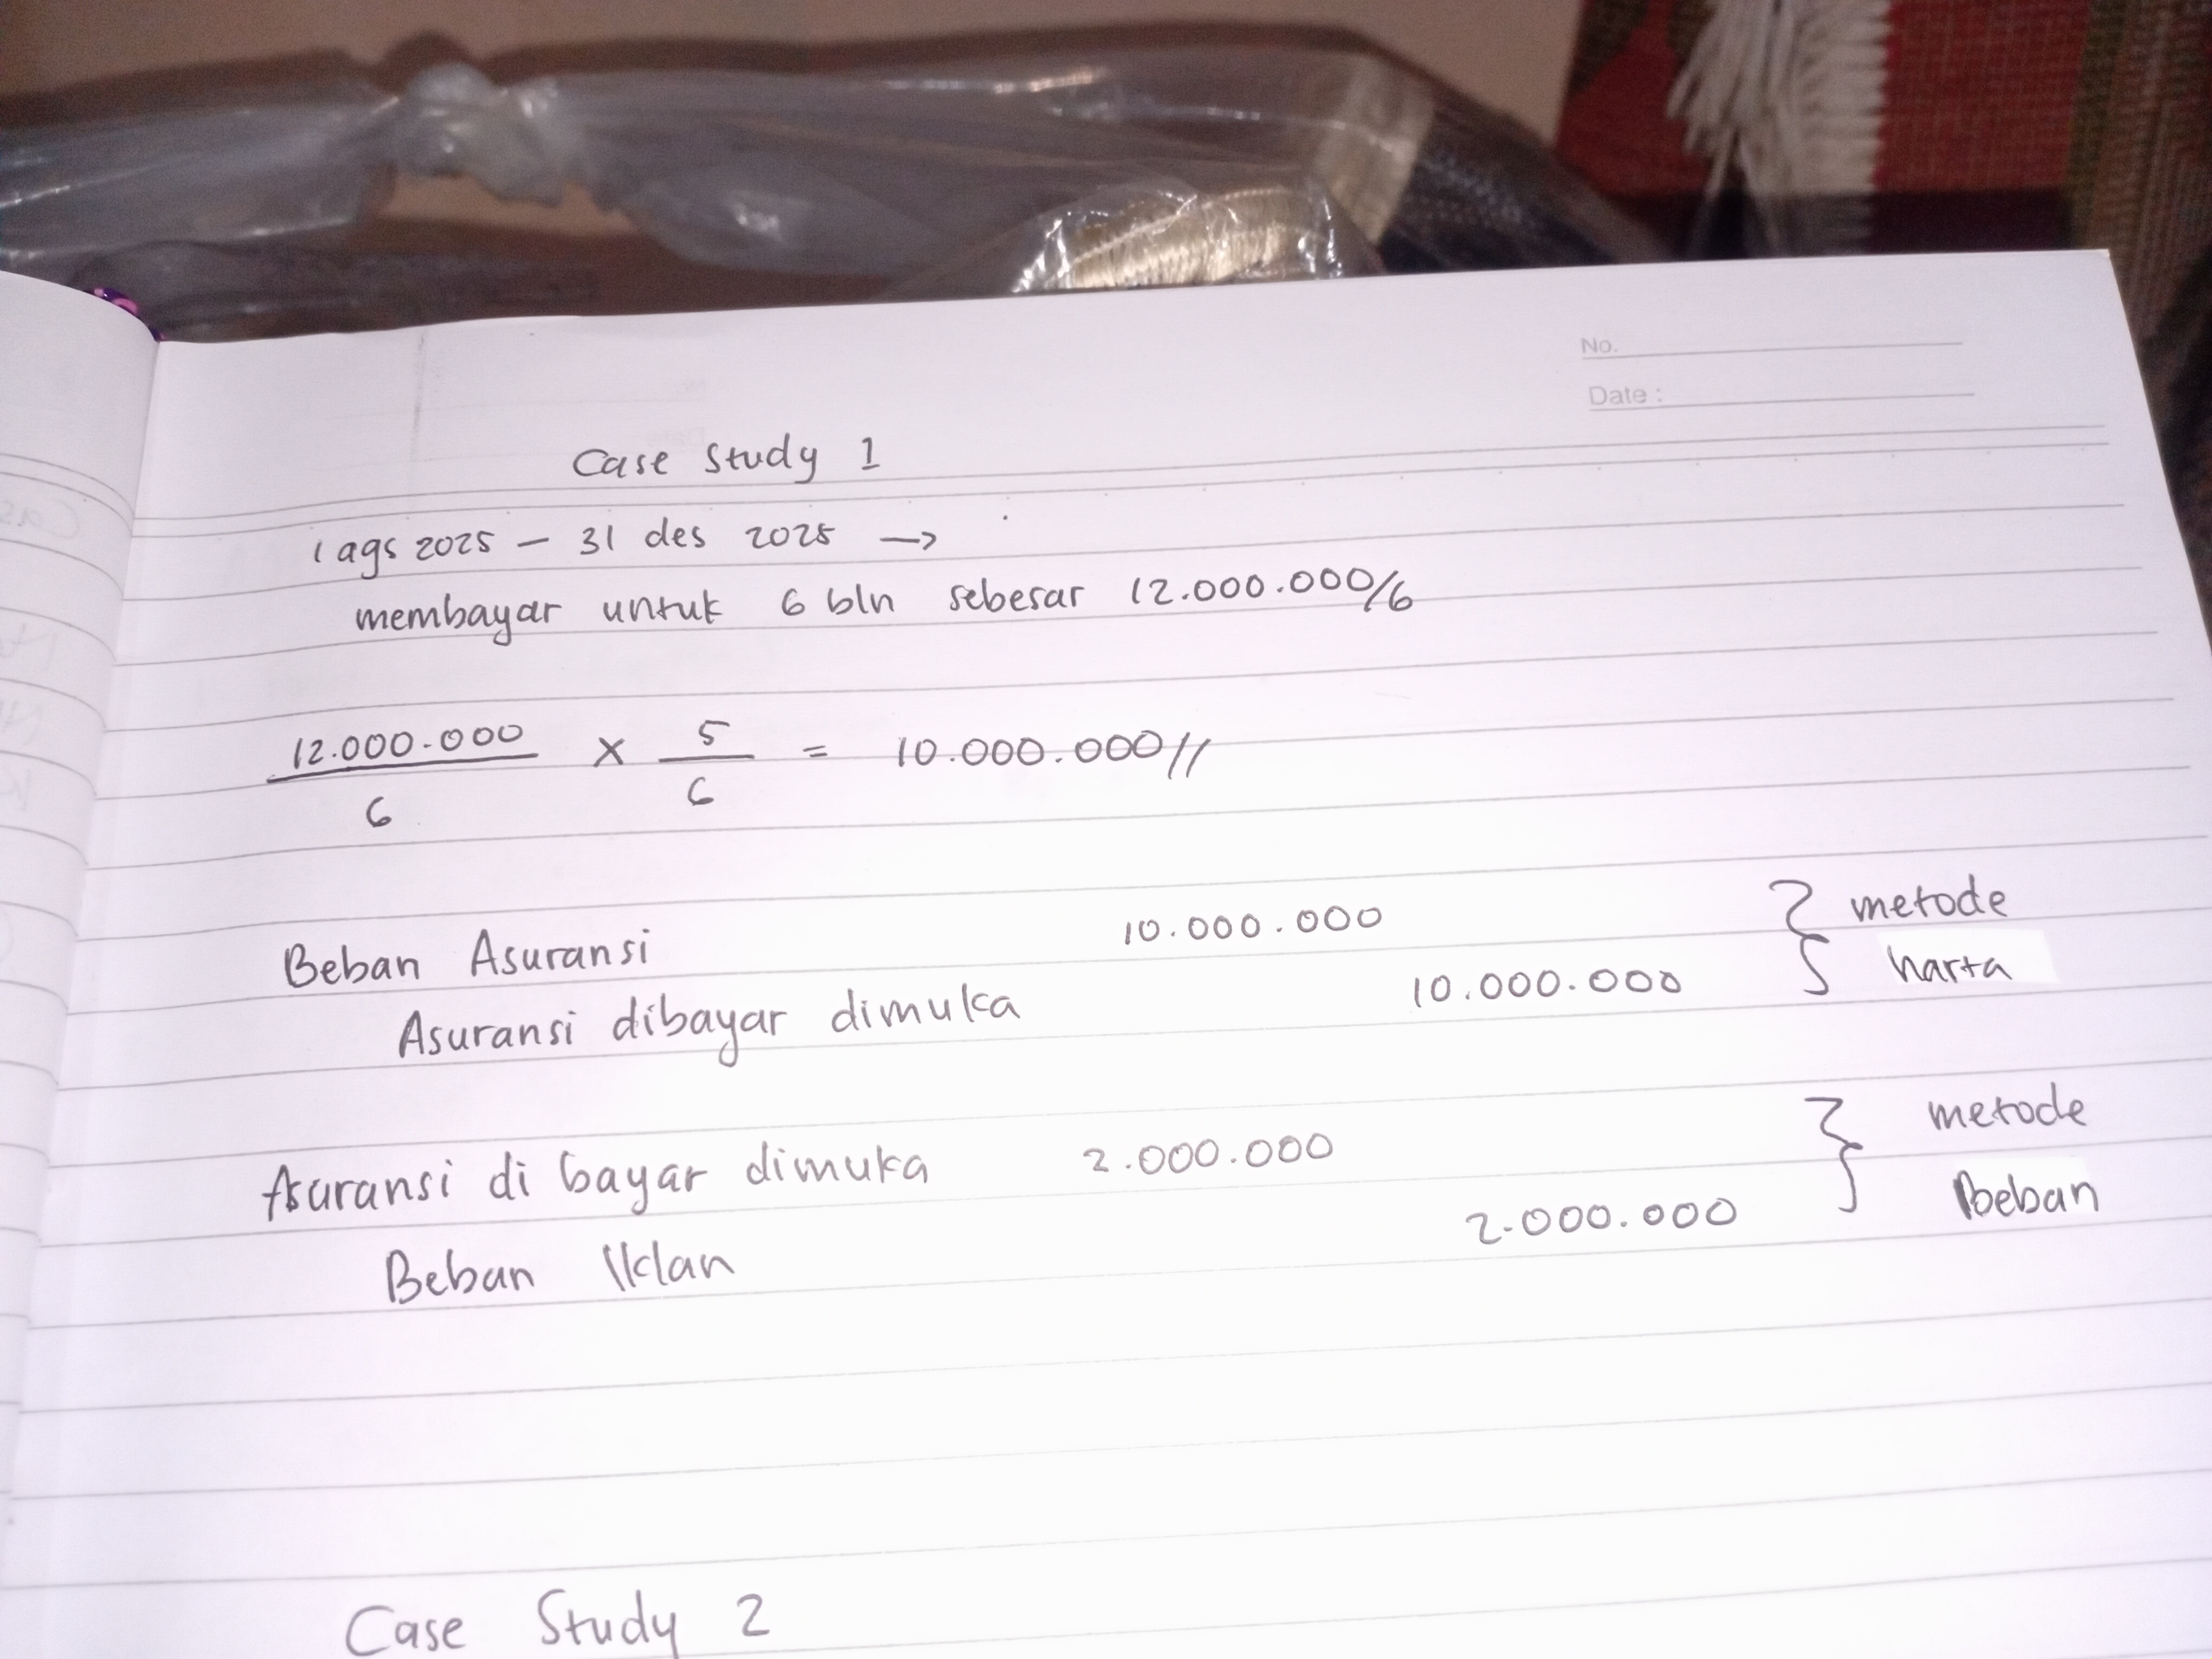 No.
Date :
Case Study 1
1 ags 2025 — 31 des 2025 →
membayar untuk 6 bln sebesar 12.000.000/6
12.000.000 × 5 = 10.000.000//
6 6
Beban Asuransi 10.000.000 } metode
Asuransi dibayar dimuka 10.000.000 harta
Asuransi di bayar dimuka 2.000.000 } metode
Beban Iklan 2.000.000 beban
Case Study 2